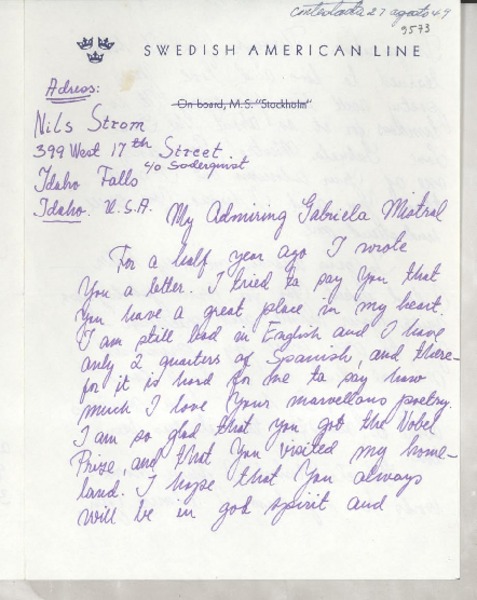 contestada 27 agosto 49
9573
SWEDISH AMERICAN LINE
On board, M.S. "Stockholm"
Adress:
Nils Strom
399 West 17th Street.
c/o Soderquist
Idaho Falls
Idaho. U.S.A.
My Admiring Gabriela Mistral
For a half year ago I wrote
You a letter. I tried to say You that
You have a great place in my heart.
I am still bad in English and I have
only 2 quarters of Spanish, and there-
for it is hard for me to say how
much I love Your marvellous poetry.
I am so glad that you got the Nobel
Prize, and that You visited my home-
land. I hope that You always
will be in god spirit and